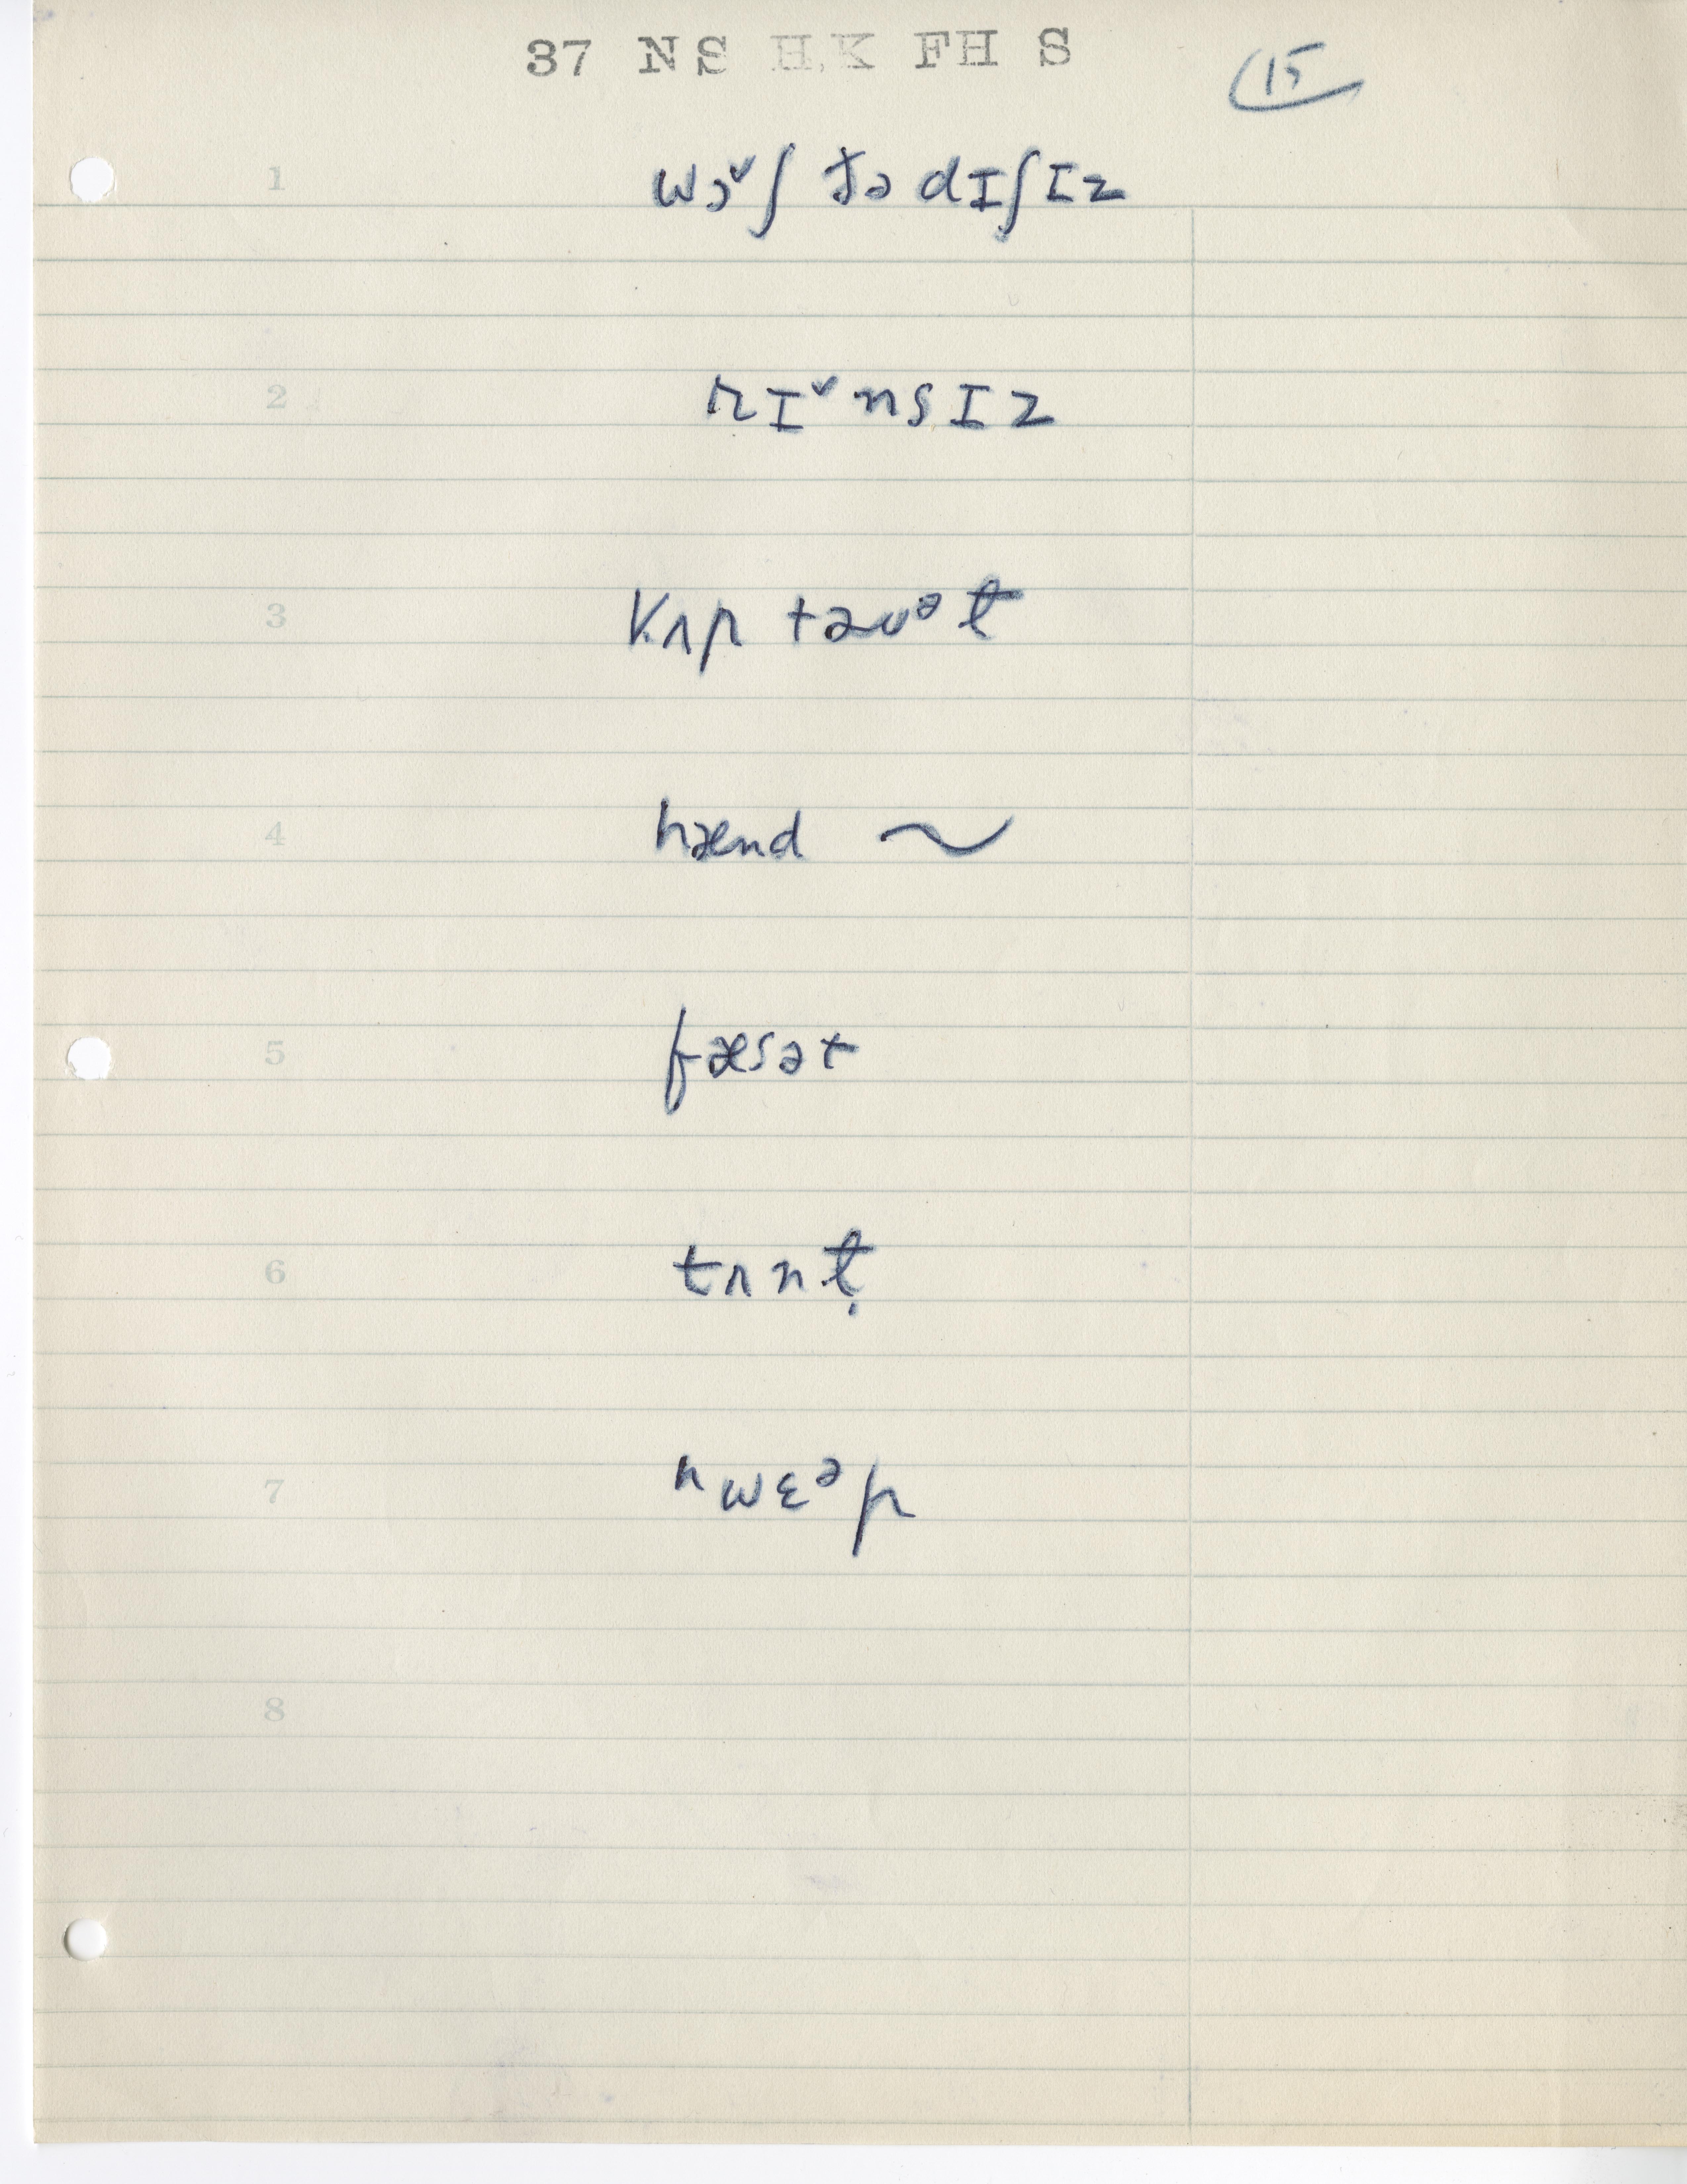 37 NS H.K FH S
15
1 wɔˇʃ ðə dɪʃɪz
2 rɪˇnsɪz
3 kʌp taʊᵊɫ
4 hænd ~
5 fæsət
6 tʌnɫ̣
7 ʰwɛᵊr
8